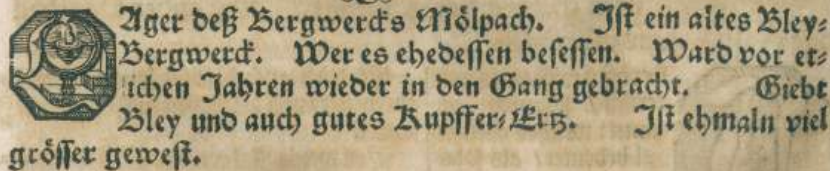 LAger deß Bergwercks Mölpach. Ist ein altes Bley-
Bergwerck. Wer es ehedessen besessen. Ward vor et-
lichen Jahren wieder in den Gang gebracht. Giebt
Bley und auch gutes Kupffer-Ertz. Ist ehmaln viel
grösser gewest.